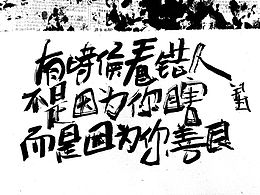 有時侯看错人
不是因为你瞎
而是因为你善良